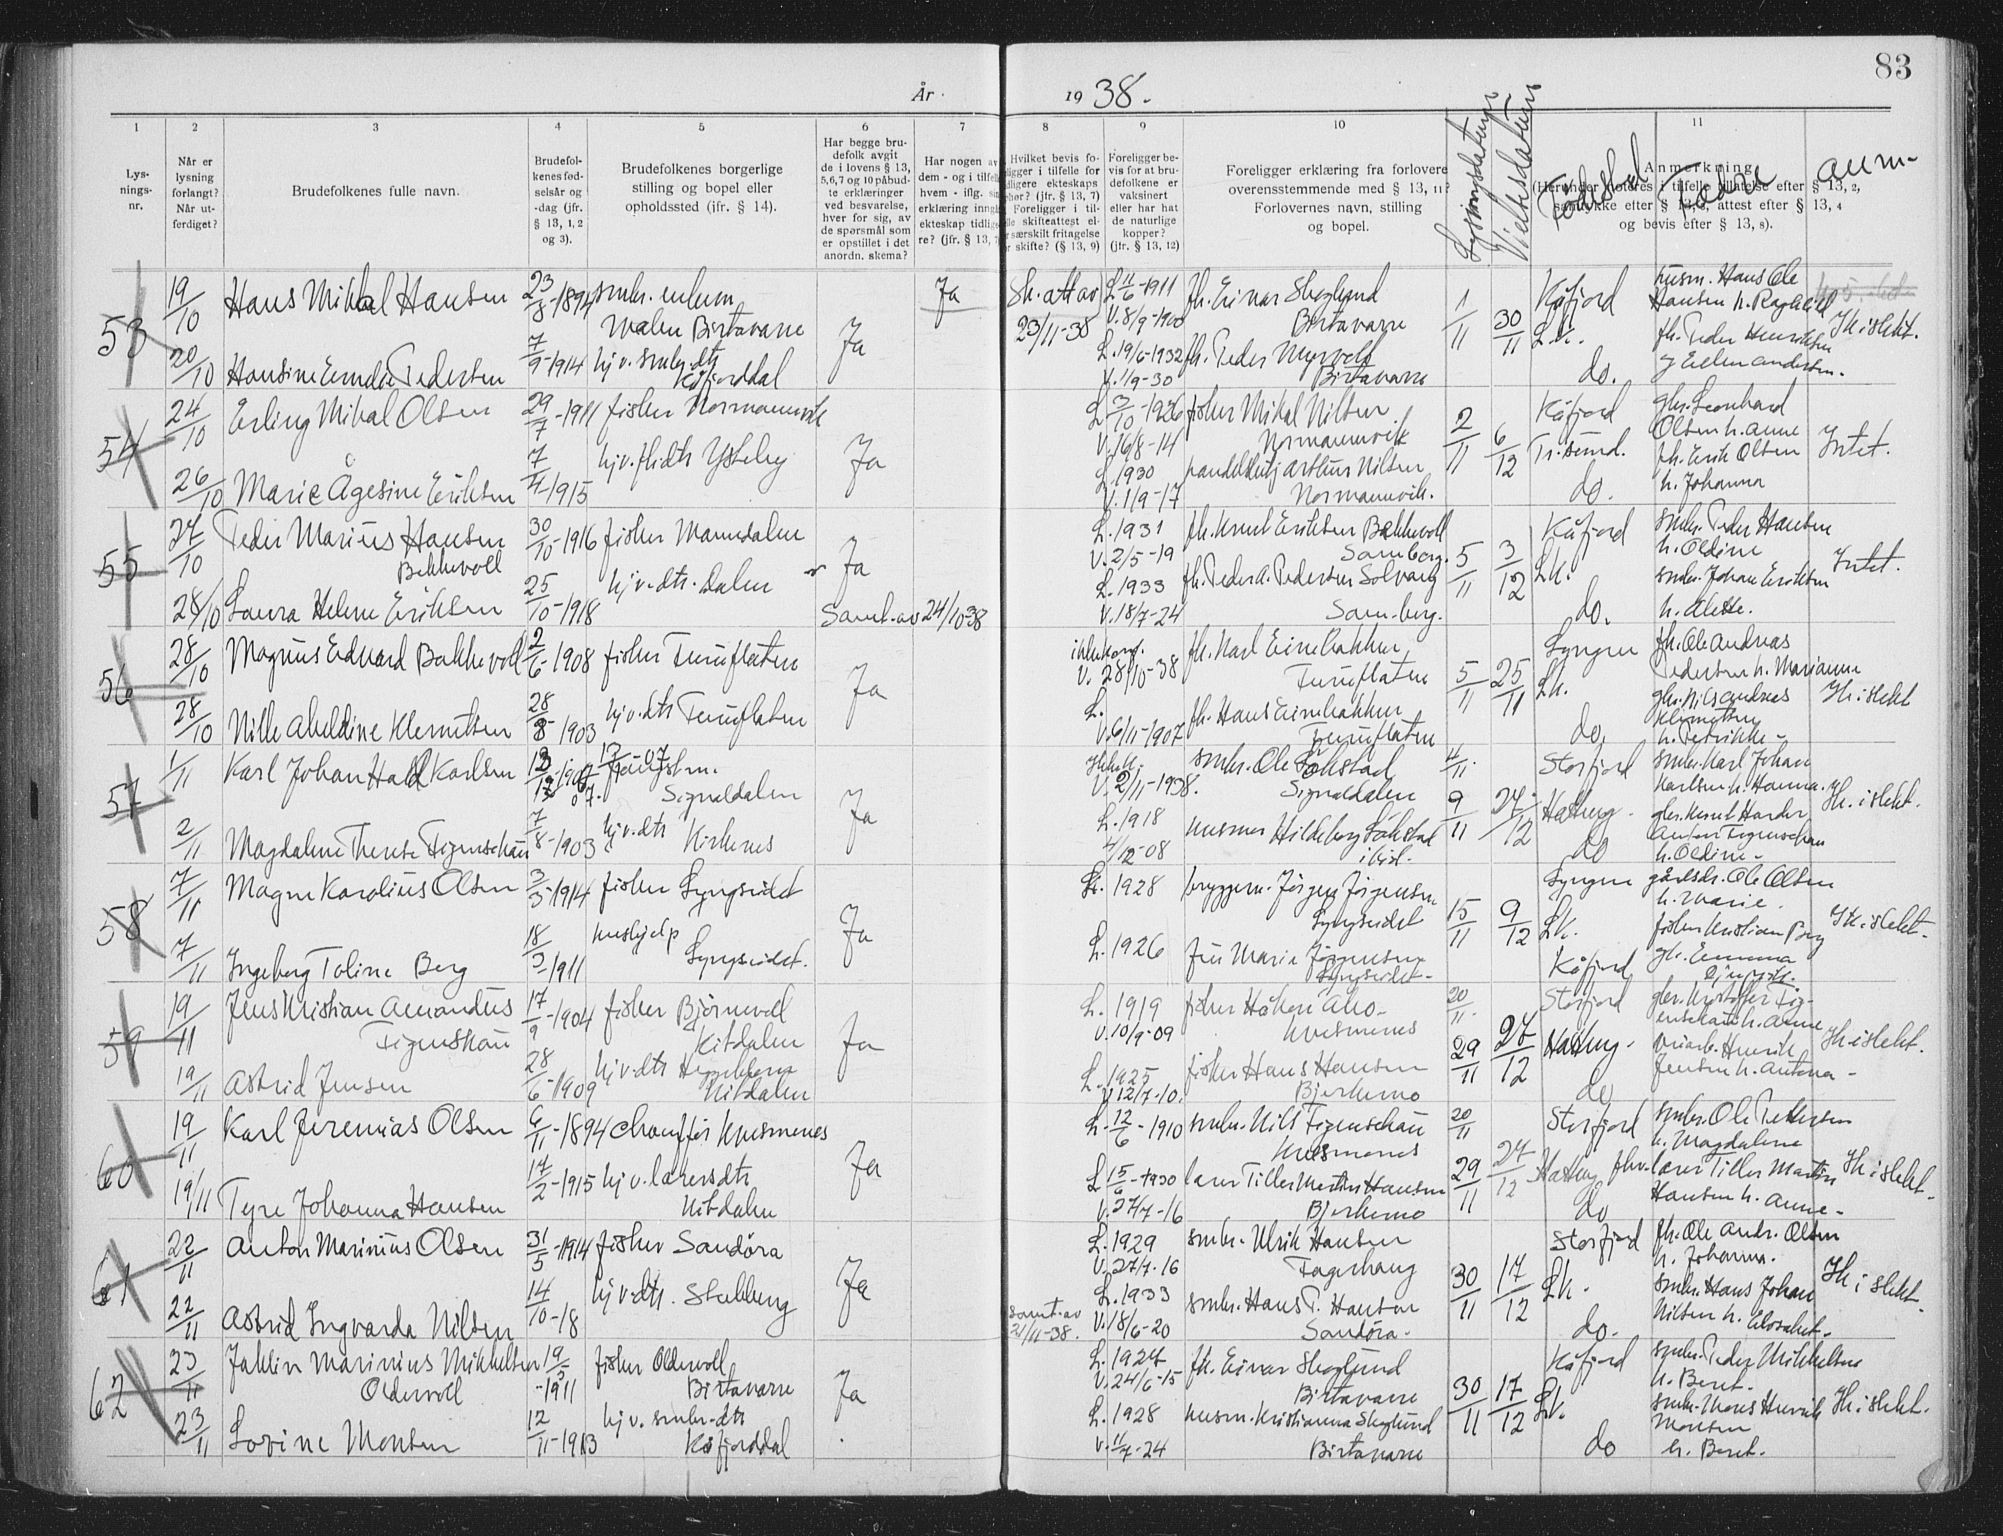 83
År 1938.
1 2 3 4 5 6 7 8 9 10 11
Lys-
nings-
nr.
Når er
lysning
forlangt?
Når ut-
ferdiget?
Brudefolkenes fulle navn.
Brudefol-
kenes fød-
selsår og
-dag (jfr.
§ 13, 1, 2
og 3).
Brudefolkenes borgerlige
stilling og bopel eller
opholdssted (jfr. § 14).
Har begge bru-
defolk avgit
de i lovens § 13,
5,6,7 og 10 påbud-
te erklæringer
ved besvarelse,
hver for sig, av
de spørsmål som
er opstillet i det
anordn. skema?
Har nogen av
dem - og i tilfelle
hvem - iflg. sin
erklæring inngå
ekteskap tidlige
re? (jfr. § 13, 7
Hvilket bevis fo-
ligger i tilfelle for
dligere ekteskaps
phør? (jfr. § 13, 7)
Foreligger i til-
lle skifteattest el-
særskilt fritagelse
r skifte? (§ 13, 9)
Foreligger be-
vis for at bru-
defolkene er
vaksinert
eller har hat
de naturlige
kopper?
(jfr. § 13, 12)
Foreligger erklæring fra forlovere
overensstemmende med § 13, 11?
Forlovernes navn, stilling
og bopel.
Lysningsdatum
Vielsesdatum
Fødested
Fedre
anm.
Anmerkning
(Herunder noteres i tilfelle tillatelse efter § 13, 2,
samtykke efter § 13, 3, attest efter § 13, 4
og bevis efter § 13, 8).
53
19/10 Hans Mikal Hansen 23/8-1894 småbr. enkem. Ja Sk. att av L 4/6-1911 fh. Einar Skoglund 1/11 30/11 Kåfjord husm. Hans Ole
Birtavarre 23/11-38 V. 8/9-1900 Birtavarre L.k. Hansen h. Ragnhild
20/10 Hansine Emelie Pedersen 7/9-1914 hj.v. småbr. dtr. Ja L. 19/6-1932 fh. Peder Myrvold fh. Peder Henriksen Ik. i slekt.
Kåfjorddal V. 1/9-30 Birtavarre do. og Ellen Andersen.
54
24/10 Erling Mikal Olsen 29/7-1911 fisker Normannvik L 3/10-1926 fisker Mikal Nilsen 2/11 6/12 Kåfjord gbr. Leonhard
V. 16/8-14 Normannvik Tr.sund. Olsen h. Anne
26/10 Marie Ågesine Eriksen 7/4-1915 hj.v. fh. dtr. Ysteby Ja L. 1930 handelsbetj. Arthur Nilsen fh. Erik Olsen Intet.
V. 1/9-17 Normannvik. do. h. Johanna
55
27/10 Peder Marius Hansen 30/10-1916 fisker Manndalen L. 1931 fh. Knut Eriksen Bakkevoll 5/11 3/12 Kåfjord småbr. Peder Hansen
Bakkevoll Ja V. 2/5-19 Samberg. L.k. h. Oldine
28/10 Laura Helene Eriksen 25/10-1918 hj.v. dtr. Dalen L. 1933 fh. Peder A. Pedersen Solvang småbr. Johan Eriksen Intet.
Samt. av 24/10-38 V. 18/7-24 Samberg. do. h. Alette.
56
28/10 Magnus Edvard Bakkevold 2/6-1908 fisker Furuflaten V. 28/10-38 fh. Karl Eirebakken 5/11 25/11 Lyngen fh. Ole Andreas
Ja Furuflaten L.k. Pedersen h. Marianne
28/10 Nille Abeldine Klemetsen 28/8-1903 hj.v. dtr. Furuflaten L. fh. Hans Eirebakken gbr. Nils Andreas Ik. i slekt
V. 6/11-1907 Furuflaten do. Klemetsen
h. Petrikke.
57
1/11 Karl Johan Hald Karlsen 12-07 småbr. Ole Løkstad 4/11. Storfjord småbr. Karl Johan
Signaldalen V. 2/11-1938. Signaldalen 9/11 24/12 Hatteng. Karlsen h. Hanna.
2/11 Magdalene Therese Figenschau 7/8-1903 hj.v. dtr. Ja L. 1918 Ik. i slekt.
Kirkenes 4/12-08 do h. Oldine.
58
7/11 Magne Karolius Olsen 3/3-1914 fisker Lyngseidet L. 1928 bryggem. Jørgen Jørgensen 15/11 9/12 Lyngen gårdsbr. Ole Olsen
Ja Lyngseidet L.k. h. Marie.
7/11 Ingeborg Toline Berg 18/3-1911 hushjelp L. 1926 fru Marie Jørgensen fisker Kristian Berg Ik. i slekt.
Lyngseidet. Lyngseidet. Kåfjord
59
19/11 Jens Kristian Amandus 17/9-1904 fisker Bjørnevol L. 1919 fisker Håkon Aho 20/11. Storfjord gbr. Kristoffer Fig-
Figenskau Kitdalen Ja V. 10/9-09 Kvesmenes 29/11 27/12 Hatteng. enskau h. Anne
19/11 Astrid Jensen 28/6-1909 hj.v. dtr. L. 1925 fisker Hans Hansen Henrik Ik. i slekt.
Kitdalen V. 12/7-10. Bjerkemo do Jensen h. Antona.
60
19/11 Karl Jeremias Olsen 6/11-1894 chauffør Kvesmenes L. 12/6-1910 småbr. Nils Figenschau 20/11 Storfjord småbr. Ole Pettersen
Ja Kvesmenes 29/11 27/12 Hatteng h. Magdalene
19/11 Tyre Johanna Hansen 17/2-1915 hj.v. lærers dtr. L 15/6-1930 lærer Tiller Martin Hansen lærer Tiller Martin Ik. i slekt.
Kitdalen V. 27/7-16 Bjerkemo do Hansen h. Anne.
61
22/11 Anton Marinius Olsen 31/5-1914 fisker Sandøra L. 1929 småbr. Ulrik Hansen 30/11 17/12 Storfjord fh. Ole Andr. Olsen
Ja V. 27/7-16 Fagerhaug L.k. h. Johanna.
22/11 Astrid Ingvarda Nilsen 14/10-18 hj.v. dtr. Stubbeng L. 1933 småbr. Hans P. Hansen småbr. Hans Johan Ik i slekt.
Samt. av 21/11-38. V. 18/6-20 Sandøra. do. Nilsen h. Elisabet.
62
23/11 Jaklin Marinius Mikkelsen 19/5-1911 fisker Oldervoll L. 1924 fh. Einar Skoglund 30/11 17/12 Kåfjord småbr. Peder Mikkelsen
Oldervoll Birtavarre Ja V. 24/6-15 Birtavarre L.k. h. Beret.
23/11 Lovine Monsen 12/11-1913 hj.v. småbr. dtr. L. 1928 husm. Kristianna Skoglund småbr. Mons Henrik Ik. i slekt.
Kåfjorddal V. 11/7-24 Birtavarre do Monsen
h. Beret.